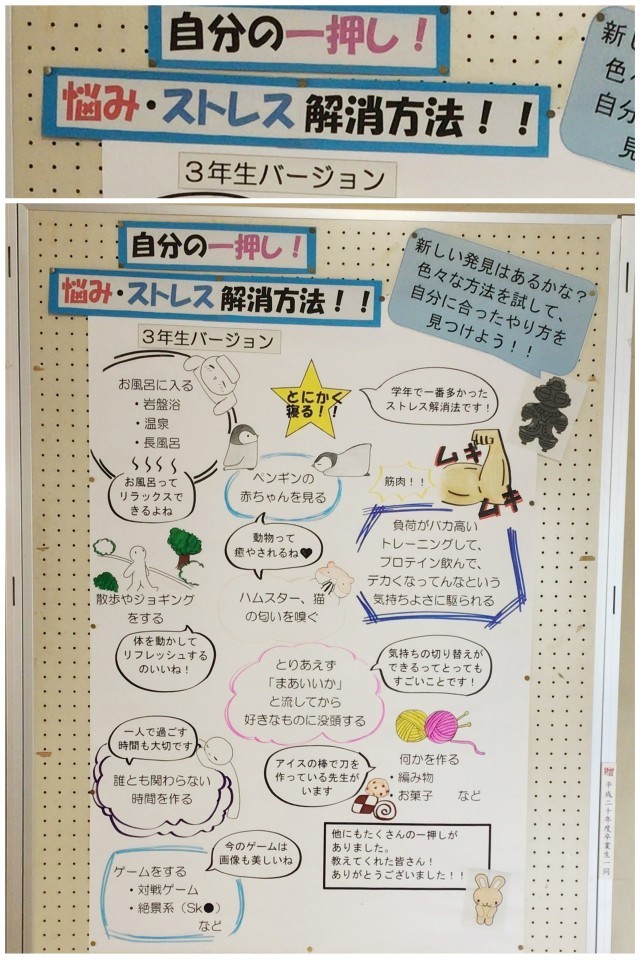 自分の一押し！
悩み・ストレス解消方法！！
３年生バージョン
新し
色々
自分
見
自分の一押し！
悩み・ストレス解消方法！！
３年生バージョン
新しい発見はあるかな？
色々な方法を試して、
自分に合ったやり方を
見つけよう！！
お風呂に入る
・岩盤浴
・温泉
・長風呂
お風呂って
リラックスで
きるよね
とにかく
寝る！！
学年で一番多かった
ストレス解消法です！
ペンギンの
赤ちゃんを見る
筋肉！！
ムキ
ムキ
動物って
癒やされるね♥
負荷がバカ高い
トレーニングして、
プロテイン飲んで、
デカくなってんなという
気持ちよさに駆られる
散歩やジョギング
をする
ハムスター、猫
の匂いを嗅ぐ
体を動かして
リフレッシュする
のいいね！
とりあえず
「まあいいか」
と流してから
好きなものに没頭する
気持ちの切り替えが
できるってとっても
すごいことです！
一人で過ごす
時間も大切です
誰とも関わらない
時間を作る
アイスの棒で刀を
作っている先生が
います
何かを作る
・編み物
・お菓子　など
今のゲームは
画像も美しいね
ゲームをする
・対戦ゲーム
・絶景系（Sk●）
など
他にもたくさんの一押しが
ありました。
教えてくれた皆さん！
ありがとうございました！！
贈 平成二十年度卒業生一同